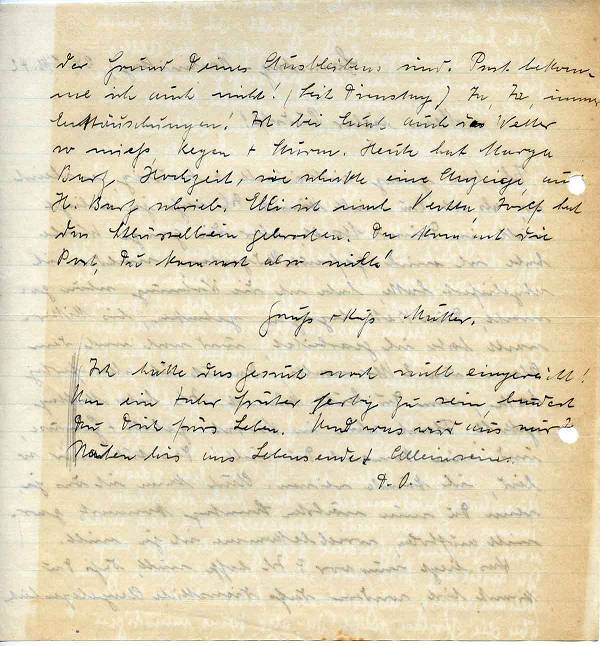 der Grund Deines Ausbleibens sind. Post bekom-
me ich auch nicht! (Seit Dienstag) Ja, Ja, immer
Enttäuschungen! Ist bei Euch auch das Wetter
so mies, Regen + Sturm. Heute hat Marga
Hochzeit, sie schickte eine Anzeige, auch
H. schrieb. Elli ist nach Josef hat
das Schlüsselbein gebrochen. Da kommt die
Post, Du kommst also nicht!
Gruß + Kuß Mutter.
Ich hätte das Gesuch noch nicht eingereicht!
Nur ein Jahr früher fertig zu sein, bindest
Du Dich fürs Leben. Und was wird aus mir?
Nähen bis ans Lebensende + Alleinsein.
D. O.